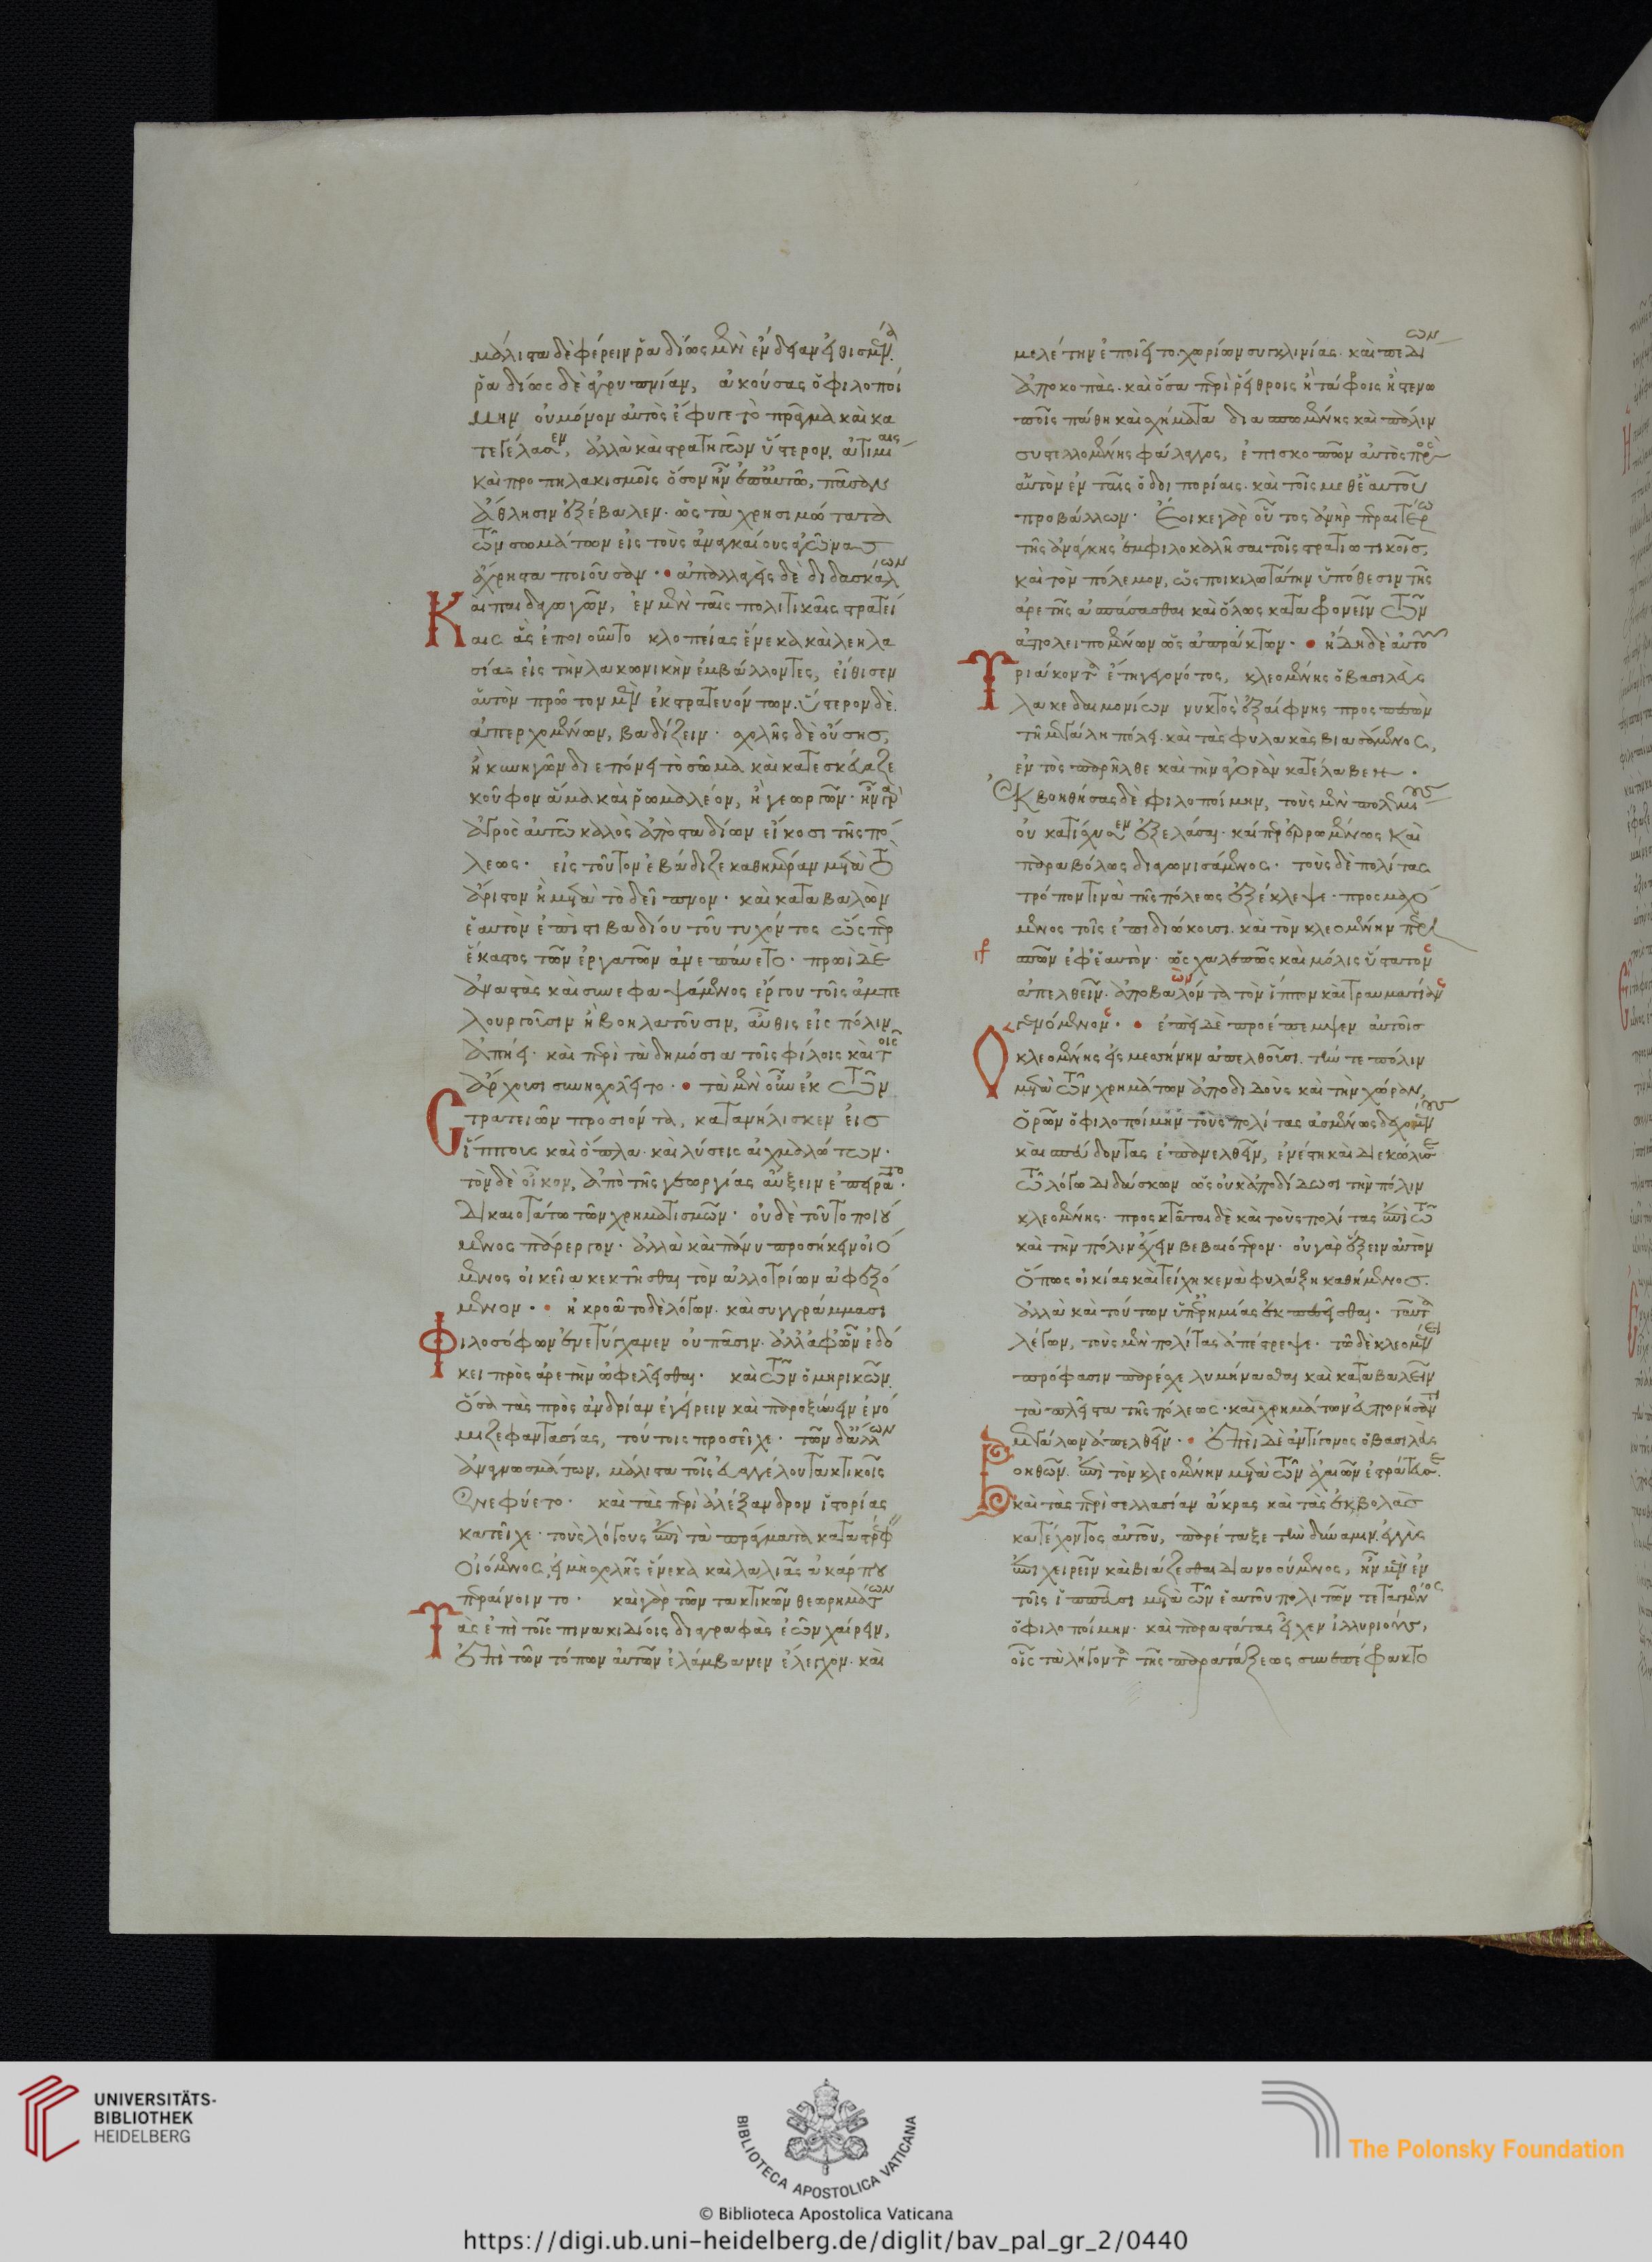 μάλιστα δὲ φέρειν ῥαδίως μὲν ἔνδειαν εἰθισμένα.
ῥαδίως δὲ ἀγρυπνίαν, ἀκούσας ὁ φιλοποί
μην οὐ μόνον αὐτὸς ἔφυγε τὸ πρᾶγμα καὶ κα
τεγέλασεν, ἀλλὰ καὶ στρατηγῶν ὕστερον, ἀτιμίαις
καὶ προπηλακισμοῖς ὅσον ἦν ἐπ' αὐτῶ, πᾶσαν
ἄθλησιν ἐξέβαλεν· ὡς τὰ χρησιμώτατα
τῶν σωμάτων εἰς τοὺς ἀναγκαίους ἀγῶνας
ἄχρηστα ποιοῦσαν· ἀπαλλαγεὶς δὲ διδασκάλων
Καὶ παιδαγωγῶν, ἐν μὲν ταῖς πολιτικαῖς στρατεί
αις ἃς ἐποιοῦντο κλοπείας ἕνεκα καὶ λεηλα
σίας εἰς τὴν λακωνικὴν ἐμβάλλοντες, εἴθισεν
αὑτὸν πρῶτον μὲν ἐκστρατευόντων. ὕστερον δὲ
ἀπερχομένων, βαδίζειν· σχολῆς δὲ οὔσης,
ἢ κυνηγῶν διεπόνει τὸ σῶμα καὶ κατεσκεύαζε
κοῦφον ἅμα καὶ ῥωμαλέον, ἢ γεωργῶν· ἦν γὰρ
ἀγρὸς αὐτῶ καλὸς ἀπὸ σταδίων εἴκοσι τῆς πό
λεως· εἰς τοῦτον ἐβάδιζε καθημέραν μετὰ τὸ
ἄριστον ἢ μετὰ τὸ δεῖπνον· καὶ καταβαλὼν
ἑαυτὸν ἐπὶ στιβαδίου τοῦ τυχόντος ὥσπερ
ἕκαστος τῶν ἐργατῶν ἀνεπάυετο· πρωῒ δὲ
ἀναστὰς καὶ συνεφαψάμενος ἔργου τοῖς ἀμπε
λουργοῦσιν ἢ βοηλατοῦσιν, αὖθις εἰς πόλιν
ἀπήει· καὶ περὶ τὰ δημόσια τοῖς φίλοις καὶ τοῖς
ἄρχουσι συνησχολεῖτο· τὰ μὲν οὖν ἐκ τῶν
Στρατειῶν προσιόντα, κατανήλισκεν εἰς
ἵππους καὶ ὅπλα· καὶ λύσεις αἰχμαλώτων·
τὸν δὲ οἶκον, ἀπὸ τῆς γεωργίας αὔξειν ἐπειρᾶτο·
δικαιοτάτω τῶν χρηματισμῶν· οὐδὲ τοῦτο ποιού
μενος πάρεργον· ἀλλὰ καὶ πάνυ προσήκειν οἰό
μενος οἰκεῖα κεκτῆσθαι τὸν ἀλλοτρίων ἀφεξό
μενον· ἠκροᾶτο δὲ λόγων· καὶ συγγράμμασι
Φιλοσόφων ἐνετύγχανεν οὐ πᾶσιν· ἀλλ' ἀφ' ὧν ἐδό
κει πρὸς ἀρετὴν ὠφελεῖσθαι· καὶ τῶν ὁμηρικῶν
ὅσα τὰς πρὸς ἀνδρίαν ἐγείρειν καὶ παροξύνειν ἐνό
μιζε φαντασίας, τούτοις προσεῖχε· τῶν δ' ἄλλων
ἀναγνωσμάτων, μάλιστα τοῖς εὐαγγέλου τακτικοῖς
ἐνεφύετο· καὶ τὰς περὶ ἀλέξανδρον ἱστορίας
κατεῖχε· τοὺς λόγους ἐπὶ τὰ πράγματα καταστρέφειν
οἰόμενος, εἰ μὴ σχολῆς ἕνεκα καὶ λαλιᾶς ἀκάρπου
περαίνοιντο· καὶ γὰρ τῶν τακτικῶν θεωρημάτων
Τὰς ἐπὶ τοῖς πινακιδίοις διαγραφὰς ἐῶν χαίρειν,
ἐπὶ τῶν τόπων αὐτῶν ἐλάμβανεν ἔλεγχον· καὶ
μελέτην ἐποιεῖτο· χωρίων συγκλινίας· καὶ πεδίων
ἀποκοπὰς· καὶ ὅσα περὶ ῥείθροις ἢ τάφροις ἢ στενω
ποῖς πάθη καὶ σχήματα διασπωμένης καὶ πάλιν
συστελλομένης φάλαγγος, ἐπισκοπῶν αὐτὸς πρὸς
αὑτὸν ἐν ταῖς ὁδοιπορίαις· καὶ τοῖς μεθ' ἑαυτοῦ
προβάλλων· ἔοικε γὰρ οὗτος ἀνὴρ περαιτέρω
τῆς ἀνάγκης ἐμφιλοκαλῆσαι τοῖς στρατιωτικοῖς,
καὶ τὸν πόλεμον, ὡς ποικιλωτάτην ὑπόθεσιν τῆς
ἀρετῆς ἀσπάσασθαι καὶ ὅλως καταφρονεῖν τῶν
ἀπολειπομένων ὡς ἀπράκτων· ἤδη δὲ αὐτοῦ
Τριάκοντα ἔτη γεγονότος, κλεομένης ὁ βασιλεὺς
λακεδαιμονίων νυκτὸς ἐξαίφνης προσπεσὼν
τῆ μεγάλη πόλει· καὶ τὰς φυλακὰς βιασάμενος,
ἐντὸς παρῆλθε καὶ τὴν ἀγορὰν κατέλαβεν·
ἐκβοηθήσας δὲ φιλοποίμην, τοὺς μὲν πολεμίους
οὐ κατίσχυσεν ἐξελάσαι· καίπερ ἐρρωμένως καὶ
παραβόλως διαγωνισάμενος· τοὺς δὲ πολίτας
τρόπον τινὰ τῆς πόλεως ἐξέκλεψε· προσμαχό
μενος τοῖς ἐπιδιώκουσι· καὶ τὸν κλεομένην περι
σπῶν ἐφ' ἑαυτὸν· ὡς χαλεπῶς καὶ μόλις ὕστατον
ἀπελθεῖν· ἀποβαλόντα τὸν ἵππον καὶ τραυματίαν
γενόμενον· ἐπεὶ δὲ προέπεμψεν αὐτοῖς
Ὁ κλεομένης εἰς μεσσήνην ἀπελθοῦσι· τήν τε πόλιν
μετὰ τῶν χρημάτων ἀποδιδοὺς καὶ τὴν χώραν,
ὁρῶν ὁ φιλοποίμην τοὺς πολίτας ἀσμένως δεχομένους
καὶ σπεύδοντας ἐπανελθεῖν, ἐνέστη καὶ διεκώλυσε
τῶ λόγω διδάσκων ὡς οὐκ ἀποδίδωσι τὴν πόλιν
κλεομένης· προσκτᾶται δὲ καὶ τοὺς πολίτας ἐπὶ τῶ
καὶ τὴν πόλιν ἔχειν βεβαιότερον· οὐ γὰρ ἕξειν αὐτὸν
ὅπως οἰκίας καὶ τείχη κενὰ φυλάξη καθήμενος·
ἀλλὰ καὶ τούτων ὑπ' ἐρημίας ἐκπεσεῖσθαι· ταῦτα
λέγων, τοὺς μὲν πολίτας ἀπέτρεψε· τῶ δὲ κλεομένει
πρόφασιν παρέσχε λυμήνασθαι καὶ καταβαλεῖν
τὰ πλεῖστα τῆς πόλεως· καὶ χρημάτων εὐπορήσαντι
μεγάλων ἀπελθεῖν· ἐπεὶ δὲ ἀντίγονος ὁ βασιλεὺς
Βοηθῶν· ἐπὶ τὸν κλεομένην μετὰ τῶν ἀχαιῶν ἐστράτευσε·
καὶ τὰς περὶ σελλασίαν ἄκρας καὶ τὰς ἐκβολὰς
κατέχοντος αὐτοῦ, παρέταξε τὴν δύναμιν· ἐγγὺς
ἐπιχειρεῖν καὶ βιάζεσθαι διανοούμενος, ἦν μὲν ἐν
τοῖς ἱππεῦσι μετὰ τῶν ἑαυτοῦ πολιτῶν τεταγμένος
ὁ φιλοποίμην· καὶ παραστάτας εἶχεν ἰλλυριούς,
οἷς τὰ λήγοντα τῆς παρατάξεως συνεπέφρακτο
UNIVERSITÄTS-
BIBLIOTHEK
HEIDELBERG
BIBLIOTECA APOSTOLICA VATICANA
The Polonsky Foundation
© Biblioteca Apostolica Vaticana
https://digi.ub.uni-heidelberg.de/diglit/bav_pal_gr_2/0440